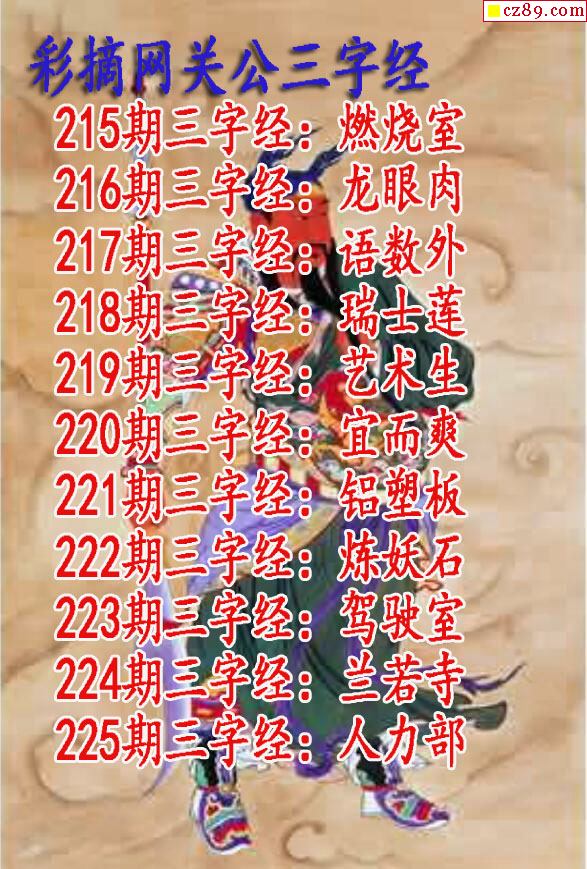 cz89.com
彩摘网关公三字经
215期三字经：燃烧室
216期三字经：龙眼肉
217期三字经：语数外
218期三字经：瑞士莲
219期三字经：艺术生
220期三字经：宜而爽
221期三字经：铝塑板
222期三字经：炼妖石
223期三字经：驾驶室
224期三字经：兰若寺
225期三字经：人力部